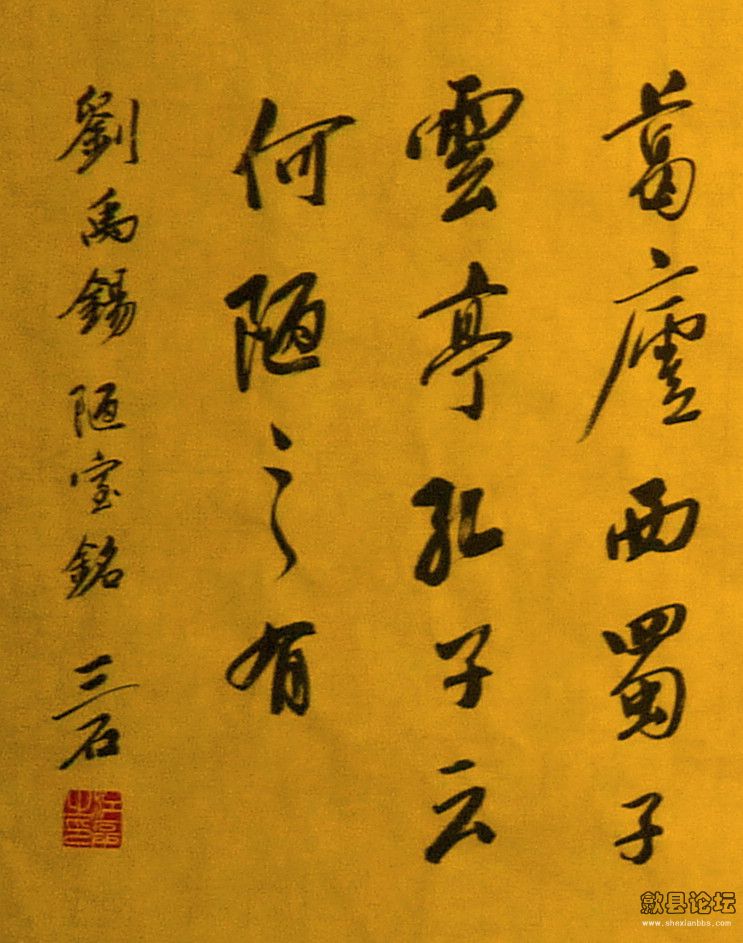 葛廬西蜀子
雲亭孔子云
何陋之有
劉禹錫陋室銘 三石
歙县论坛
www.shexianbbs.com